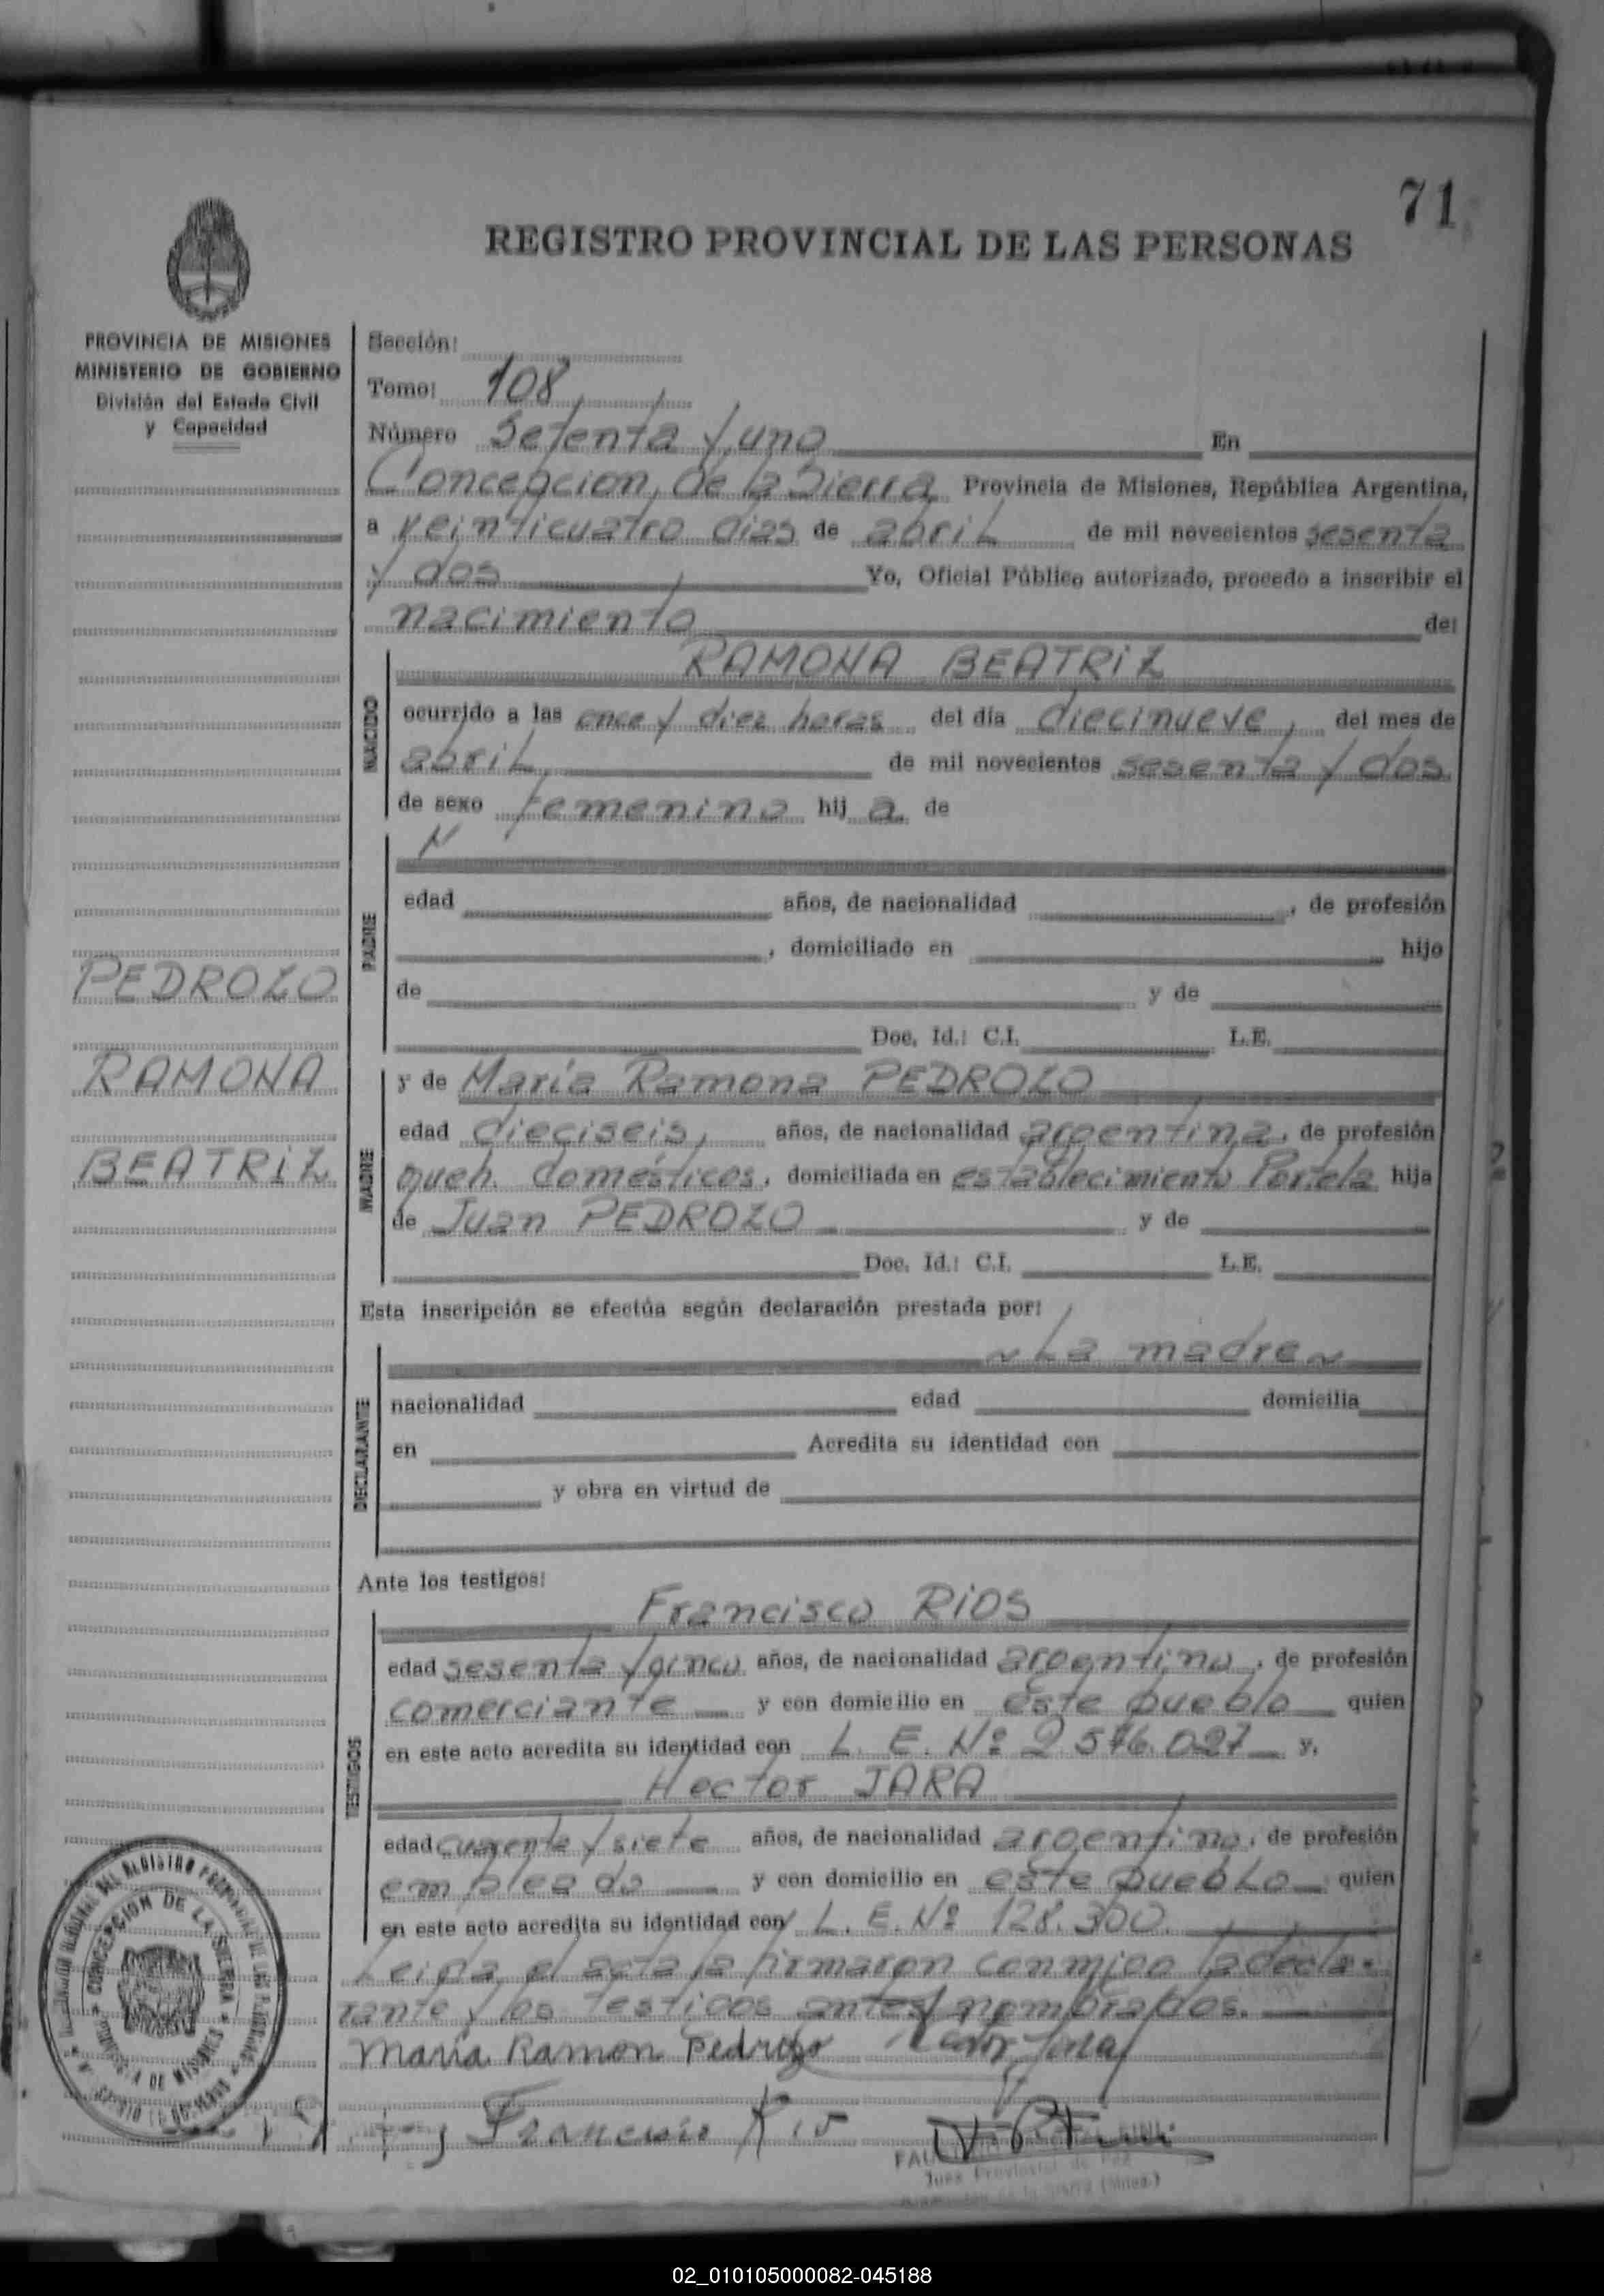 71
REGISTRO PROVINCIAL DE LAS PERSONAS
PROVINCIA DE MISIONES
MINISTERIO DE GOBIERNO
División del Estado Civil
y Capacidad
PEDROZO
RAMONA
BEATRIZ
Sección:
Tomo: 108
Número Setenta y uno En
Concepcion de la Sierra Provincia de Misiones, República Argentina,
a veinticuatro dias de abril de mil novecientos sesenta
y dos Yo, Oficial Público autorizado, procedo a inscribir el
nacimiento de:
NACIDO
RAMONA BEATRIZ
ocurrido a las once y diez horas del día diecinueve, del mes de
abril, de mil novecientos sesenta y dos
de sexo femenino hij a de
PADRE
edad años, de nacionalidad , de profesión
, domiciliado en hijo
de y de
Doc. Id.: C.I. L.E.
MADRE
y de María Ramona PEDROZO
edad dieciseis, años, de nacionalidad argentina, de profesión
queh. domésticos, domiciliada en establecimiento Portela hija
de Juan PEDROZO y de
Doc. Id.: C.I. L.E.
Esta inscripción se efectúa según declaración prestada por:
DECLARANTE
~La madre~
nacionalidad edad domicilia
en Acredita su identidad con
y obra en virtud de
Ante los testigos:
TESTIGOS
Francisco RIOS
edad sesenta y cinco años, de nacionalidad argentino, de profesión
comerciante y con domicilio en este pueblo quien
en este acto acredita su identidad con L. E. Nº 2.576.027 y,
Hector JARA
edad cuarenta y siete años, de nacionalidad argentino, de profesión
empleado y con domicilio en este pueblo quien
en este acto acredita su identidad con L. E. Nº 128.300.
Leida el acta la firmaron conmigo la decla-
rante y los testigos antes nombrados.
Maria Ramon Pedrozo
Francisco Rio
CONCEPCION DE LA SIERRA
PROVINCIA DE MISIONES
Juez Provincial de Paz
02_010105000082-045188